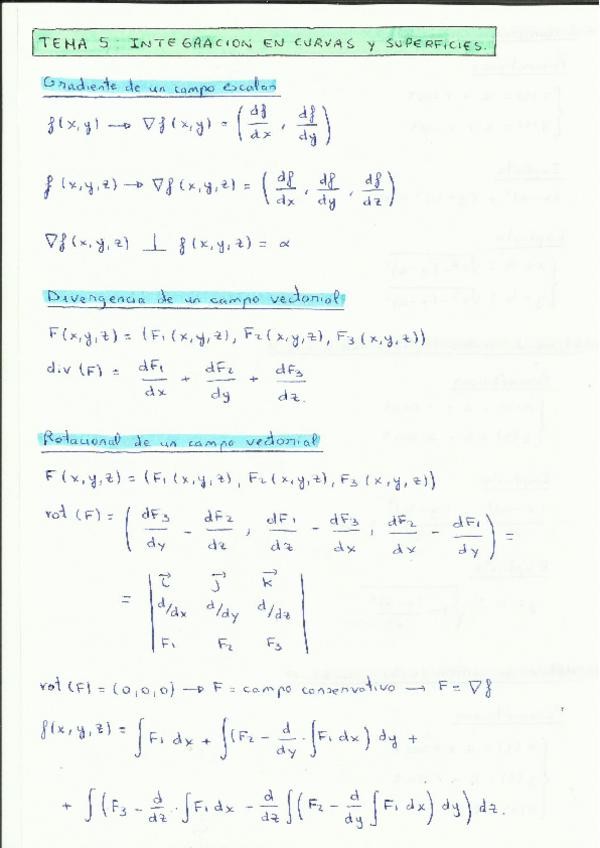 TEMA 5: INTEGRACION EN CURVAS Y SUPERFICIES.
Gradiente de un campo escalar
f(x,y) → ∇f(x,y) = (df/dx, df/dy)
f(x,y,z) → ∇f(x,y,z) = (df/dx, df/dy, df/dz)
∇f(x,y,z) ⊥ f(x,y,z) = α
Divergencia de un campo vectorial
F(x,y,z) = (F₁(x,y,z), F₂(x,y,z), F₃(x,y,z))
div(F) = dF₁/dx + dF₂/dy + dF₃/dz.
Rotacional de un campo vectorial
F(x,y,z) = (F₁(x,y,z), F₂(x,y,z), F₃(x,y,z))
rot(F) = (dF₃/dy - dF₂/dz, dF₁/dz - dF₃/dx, dF₂/dx - dF₁/dy) =
= | i⃗ j⃗ k⃗
d/dx d/dy d/dz
F₁ F₂ F₃ |
rot(F) = (0,0,0) → F = campo conservativo → F = ∇f
f(x,y,z) = ∫F₁ dx + ∫(F₂ - d/dy · ∫F₁ dx) dy +
+ ∫(F₃ - d/dz · ∫F₁ dx - d/dz ∫(F₂ - d/dy ∫F₁ dx) dy) dz.